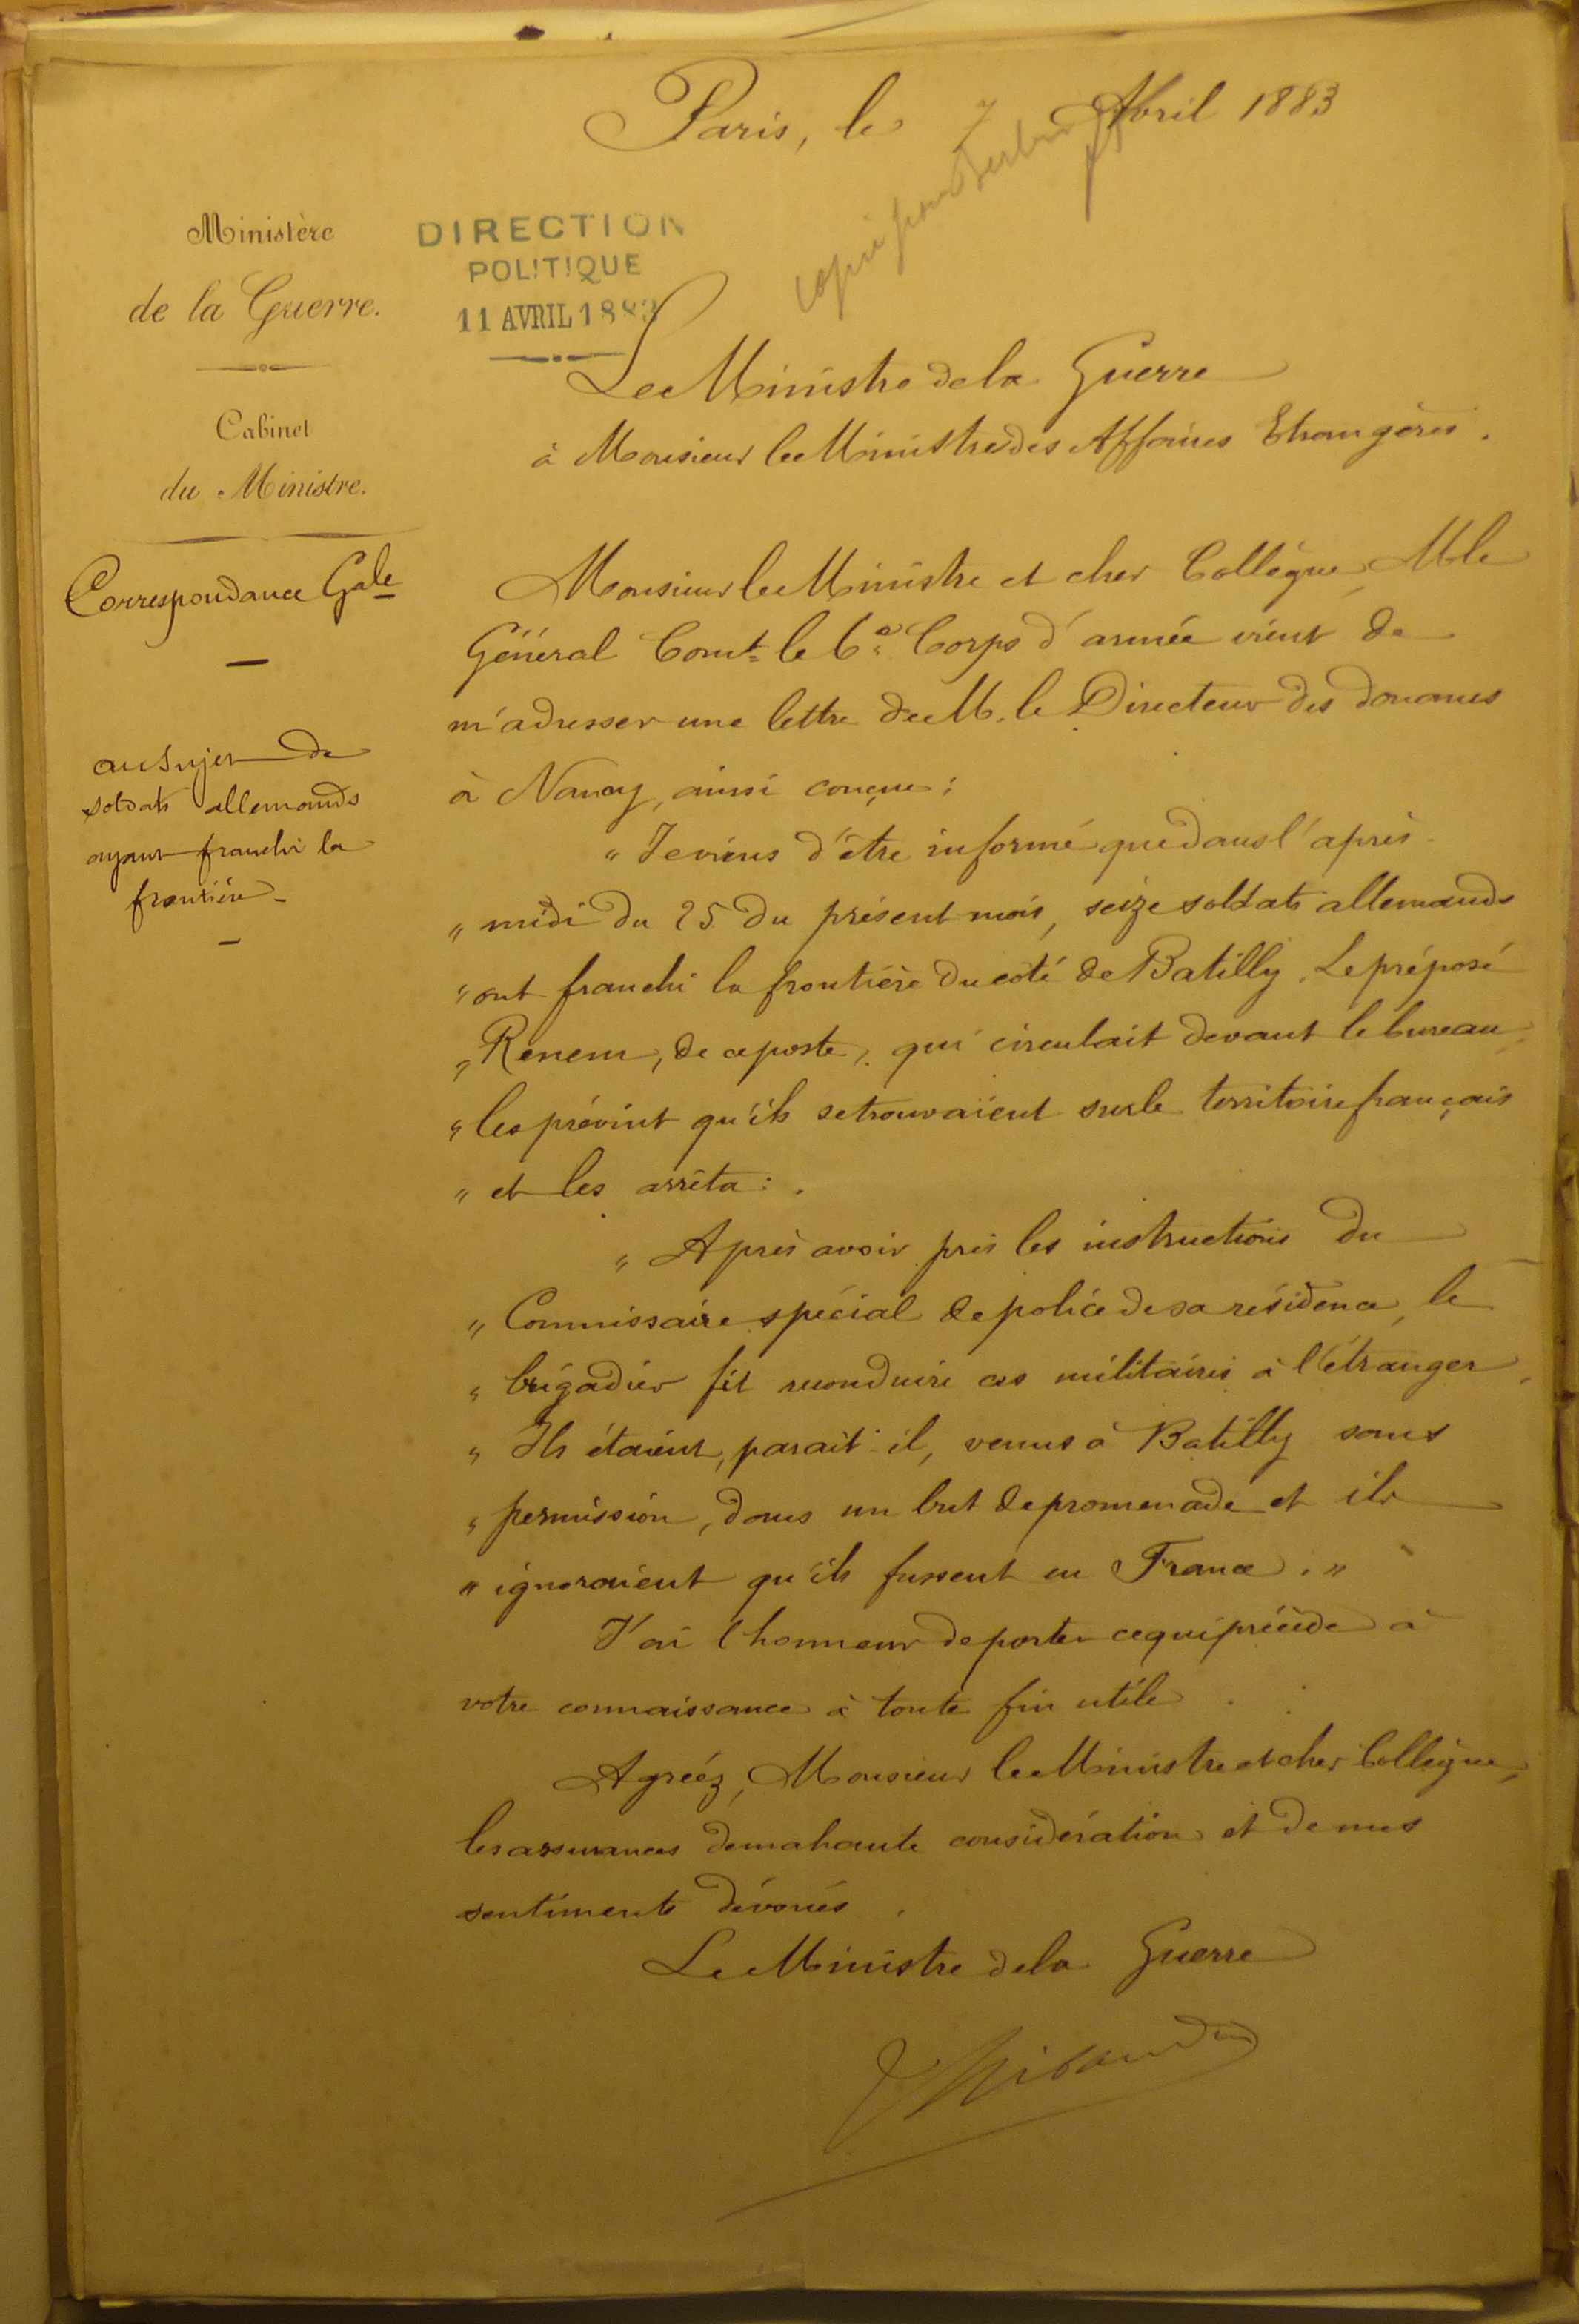 Paris, le 7 Avril 1883
copie pour Berlin
Ministère
de la Guerre.
DIRECTION
POLITIQUE
11 AVRIL 1883
Cabinet
du Ministre.
Le Ministre de la Guerre
à Monsieur le Ministre des Affaires Etrangères.
Correspondance Gale
au sujet de
soldats allemands
ayant franchi la
frontière
Monsieur le Ministre et cher Collègue, M. le
Général Comt. le 6e Corps d'armée vient de
m'adresser une lettre de M. le Directeur des douanes
à Nancy, ainsi conçue :
" Je viens d'être informé que dans l'après-
" midi du 25 du présent mois, seize soldats allemands
" ont franchi la frontière du côté de Batilly. Le préposé
" , de ce poste, qui circulait devant le bureau
" les prévint qu'ils se trouvaient sur le territoire français
" et les arrêta.
" Après avoir pris les instructions du
" Commissaire spécial de police de sa résidence, le
" brigadier fit reconduire ces militaires à l'étranger.
" Ils étaient, parait-il, venus à Batilly sans
" permission, dans un but de promenade et ils
" ignoraient qu'ils fussent en France. "
J'ai l'honneur de porter ce qui précède à
votre connaissance à toute fin utile.
Agréez, Monsieur le Ministre et cher Collègue,
les assurances de ma haute considération et de mes
sentiments dévoués.
Le Ministre de la Guerre
Thibaudin